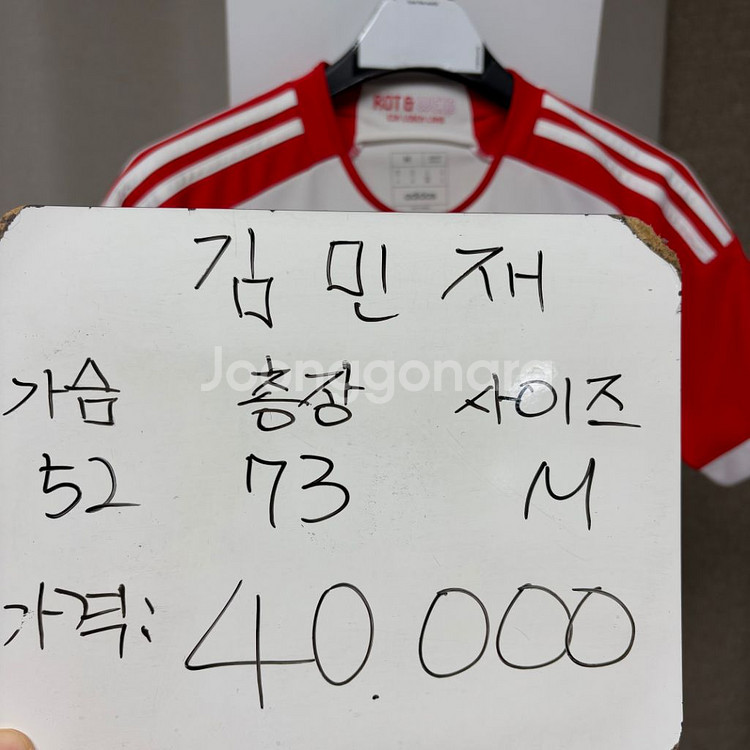 ROT &
김민재
Joonggonara
가슴 총장 사이즈
52 73 M
가격: 40.000